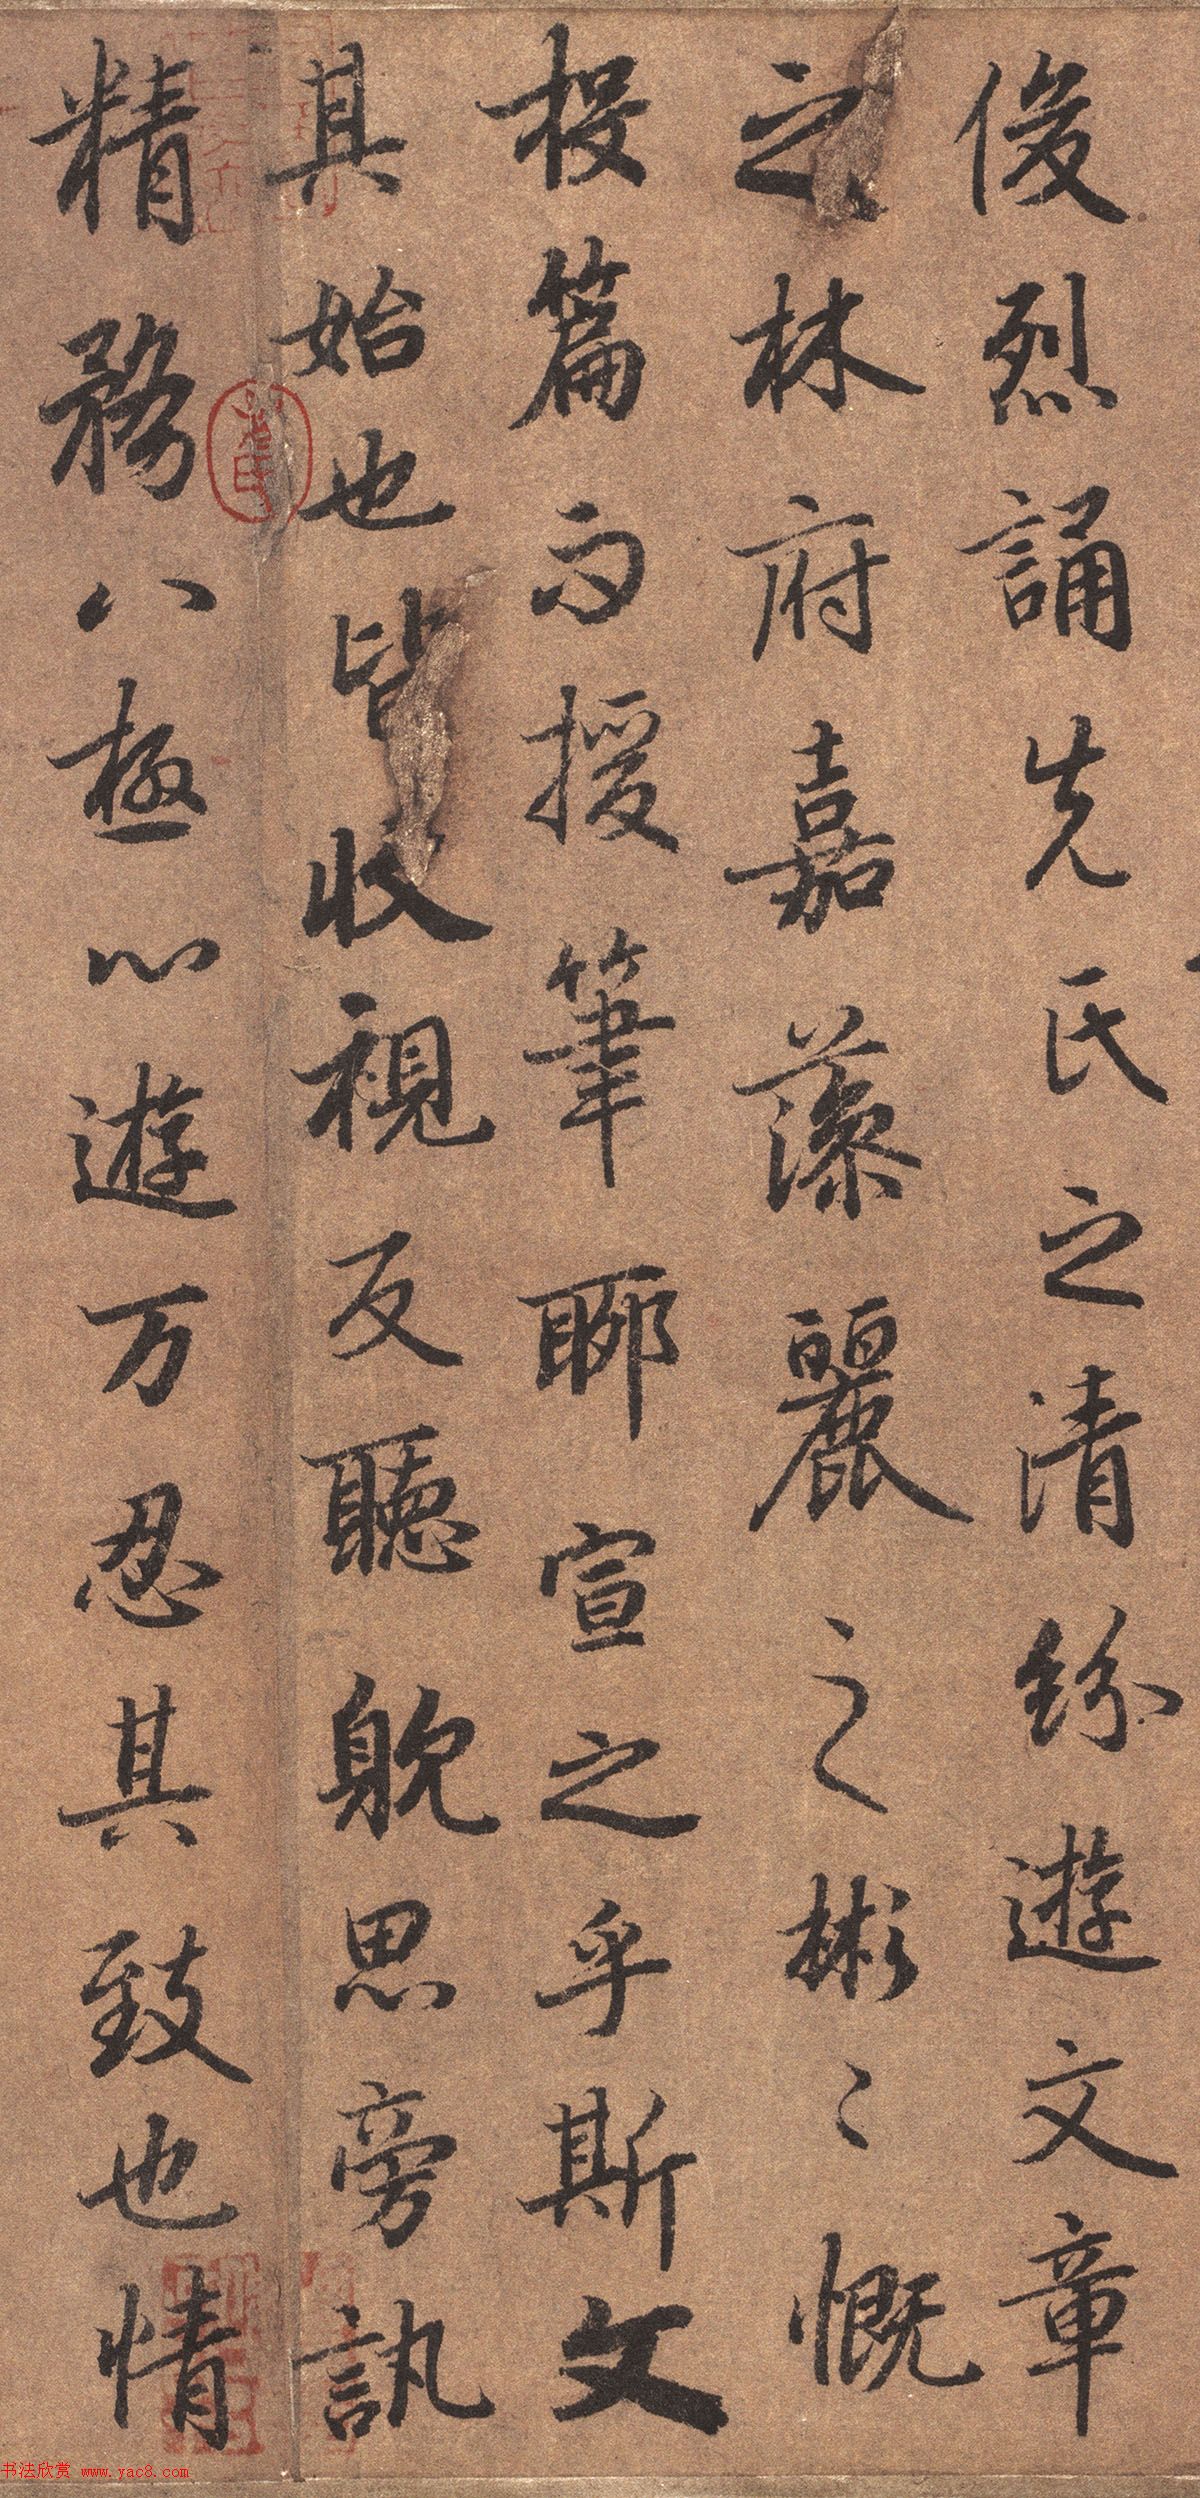 俊烈誦先氏之清紛遊文章
之林府嘉藻麗之彬〻慨
投篇而援筆聊宣之乎斯文
其始也皆收視反聽躭思旁訊
精務八極心遊万忍其致也情
书法欣赏 www.yac8.com